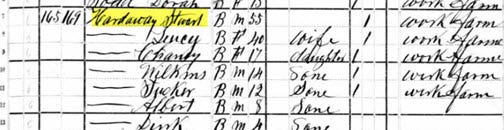 Dorah B F 13 work Farm
7 165 169 Hardaway Stuart B M 55 1 work Farm
8 —— Tency B F 40 Wife 1 work Farme
9 —— Chaney B F 17 daughter 1 work Farme
—— Wilkins B M 14 Sone 1 work Farm
—— Tucker B M 12 Sone 1 work Farm
12 —— Albert B M 8 Sone
13 —— Link B M 4 Sone